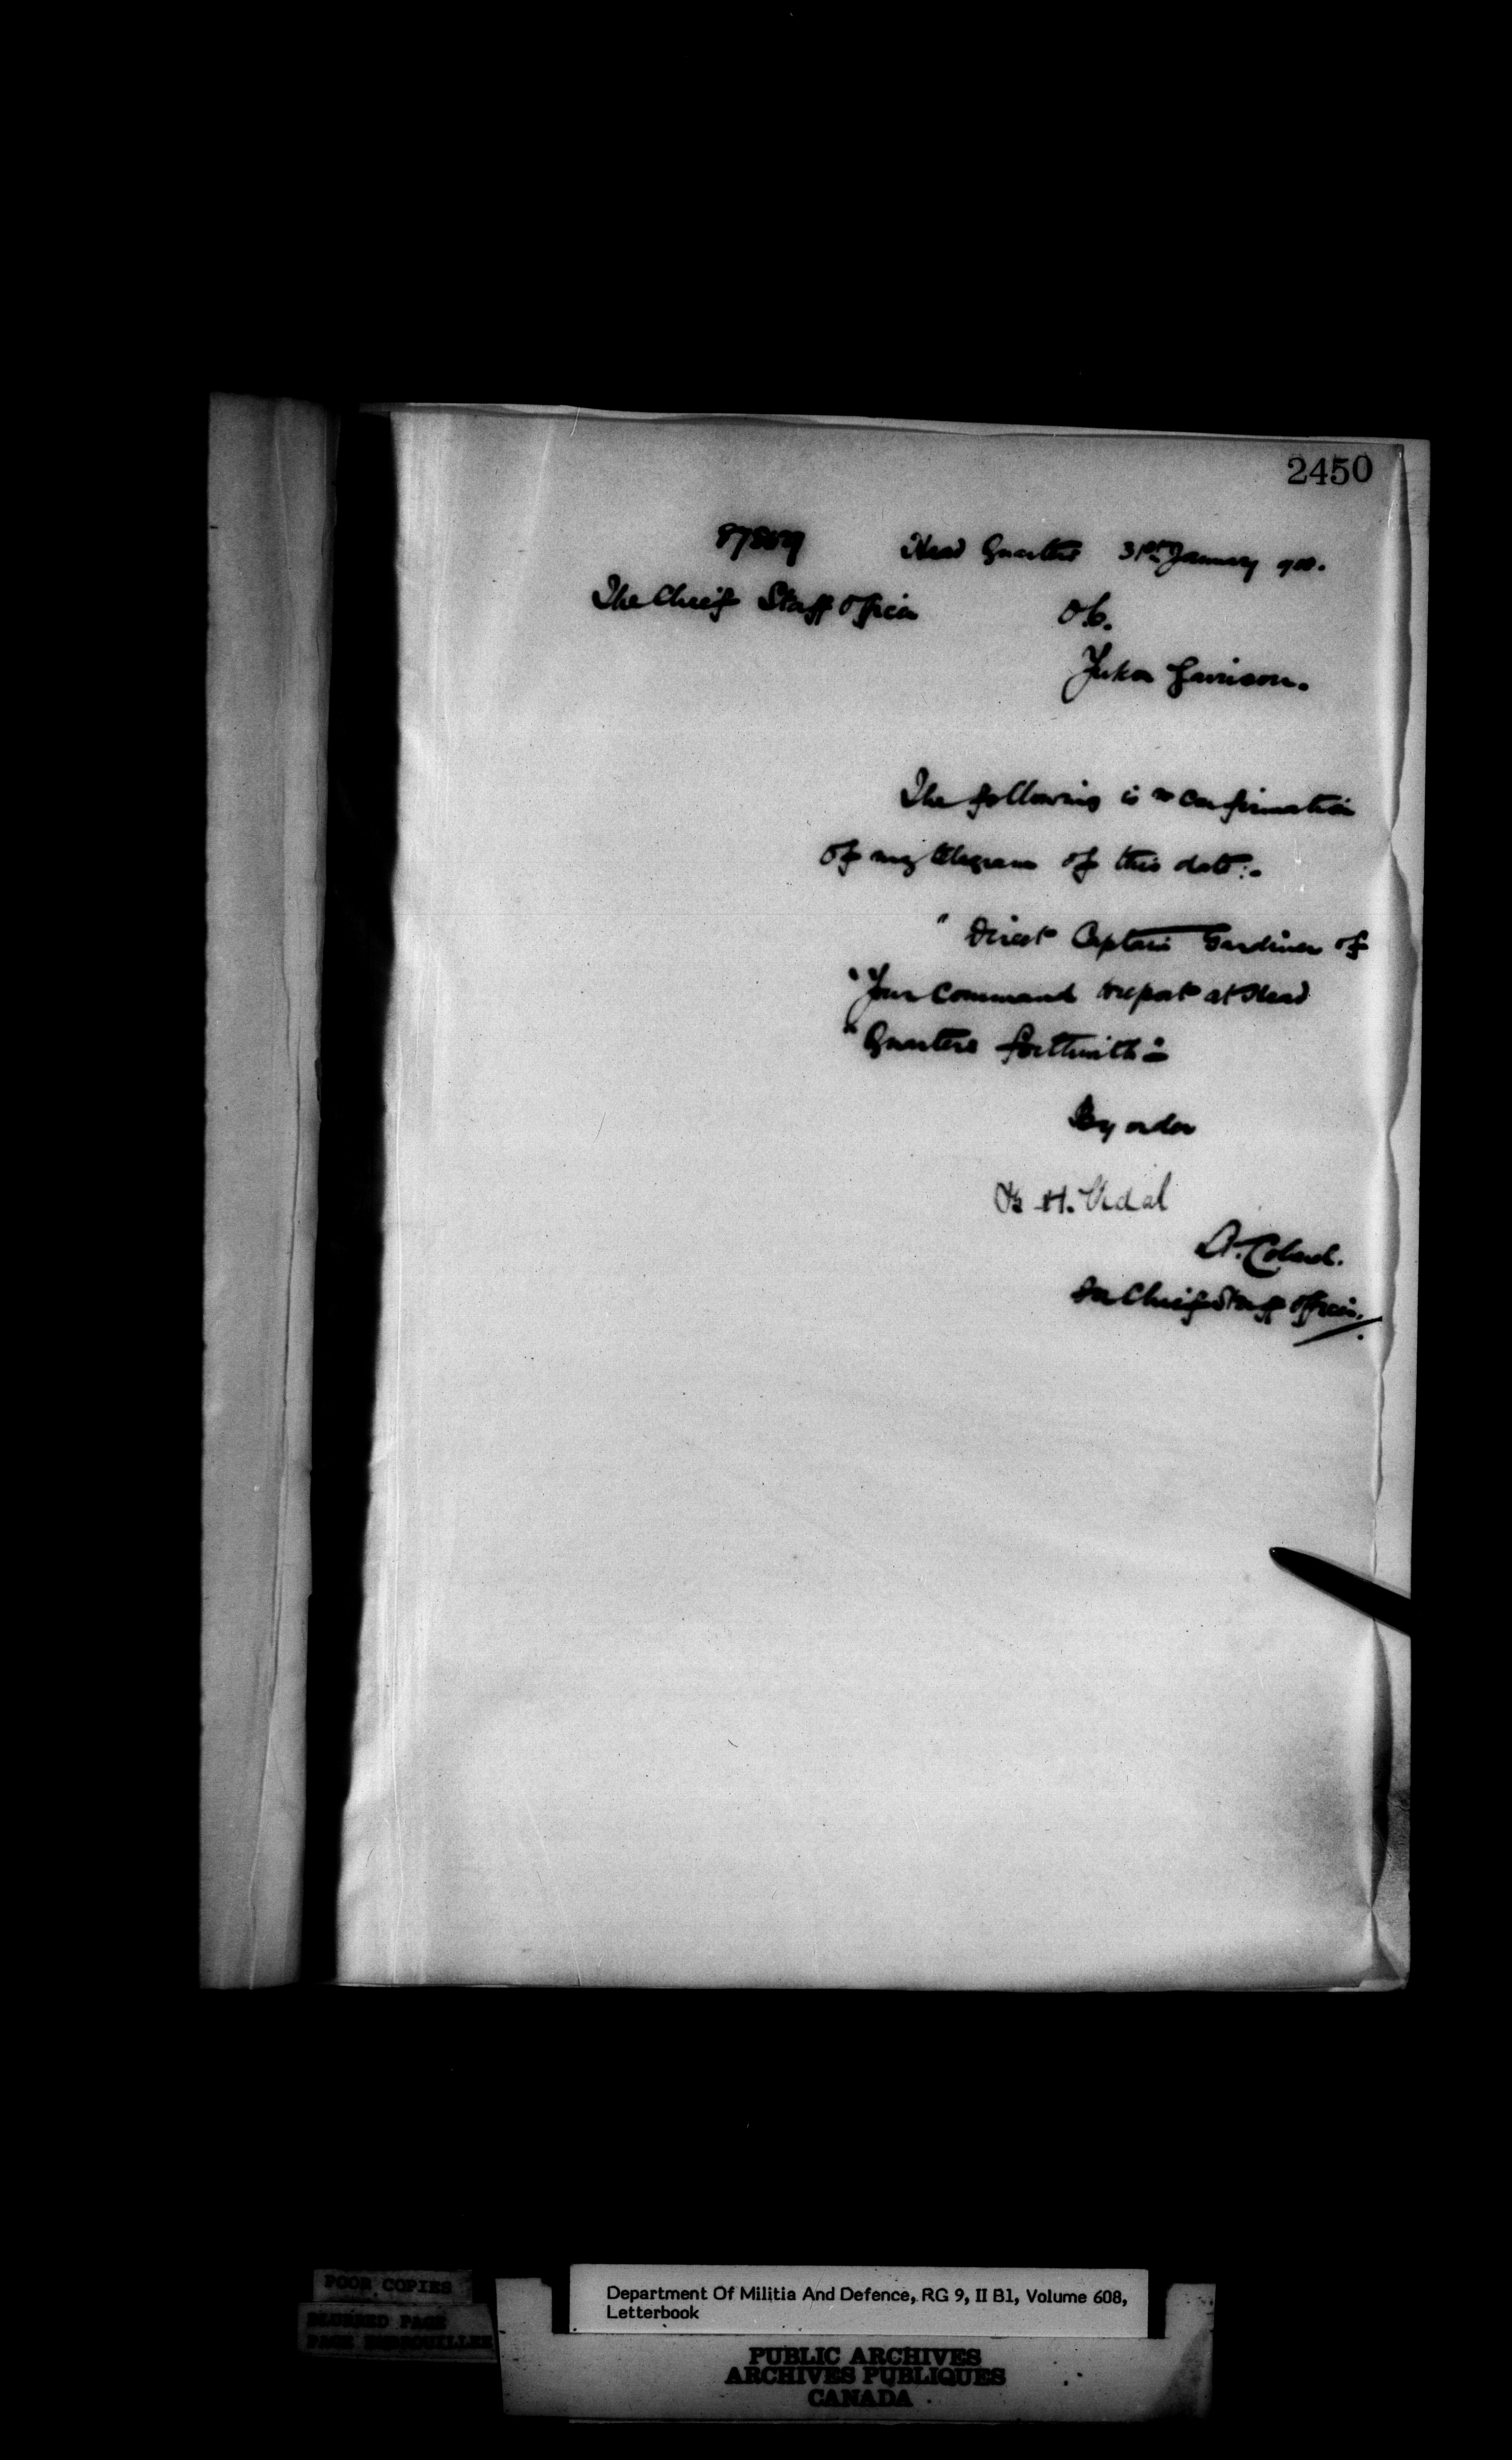 2450
Head Quarters 31st January 900.
The Chief Staff Officer
O.C.
Yukon Garrison.
The following is a confirmation
of my telegram of this date:-
" Direct Captain Gardiner of
" Your Command to report at Head
" Quarters forthwith :-
By order
B. H. Vidal
Lt. Colonel.
For Chief Staff Officer.
POOR COPIES
BLURRED PAGE
PAGE EMBROUILLEE
Department Of Militia And Defence, RG 9, II B1, Volume 608,
Letterbook
PUBLIC ARCHIVES
ARCHIVES PUBLIQUES
CANADA